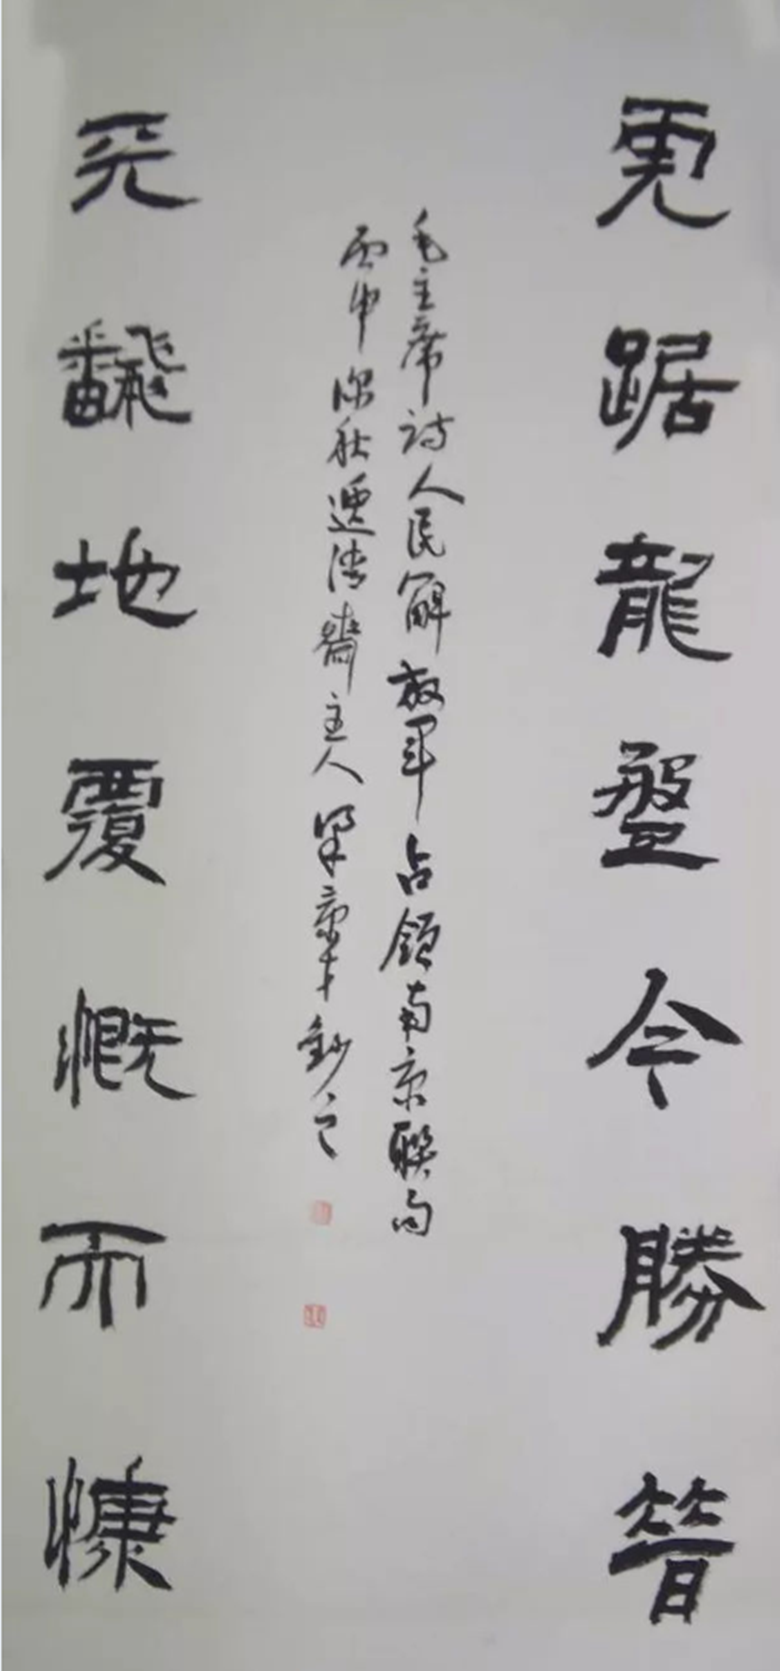 虎踞龍盤今勝昔
毛主席詩人民解放軍占領南京聯句
丙申深秋齋主人梁鈔之
天飜地覆慨而慷